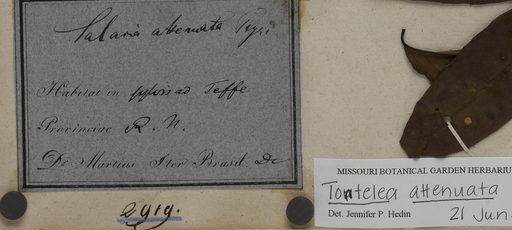 Salacia attenuata
Habitat in sylvis ad Teffe
Provinciae R. N.
Dr Martius Iter Brasil.
2919.
MISSOURI BOTANICAL GARDEN HERBARIU
Tontelea attenuata
Det. Jennifer P. Hedin 21 Jun.